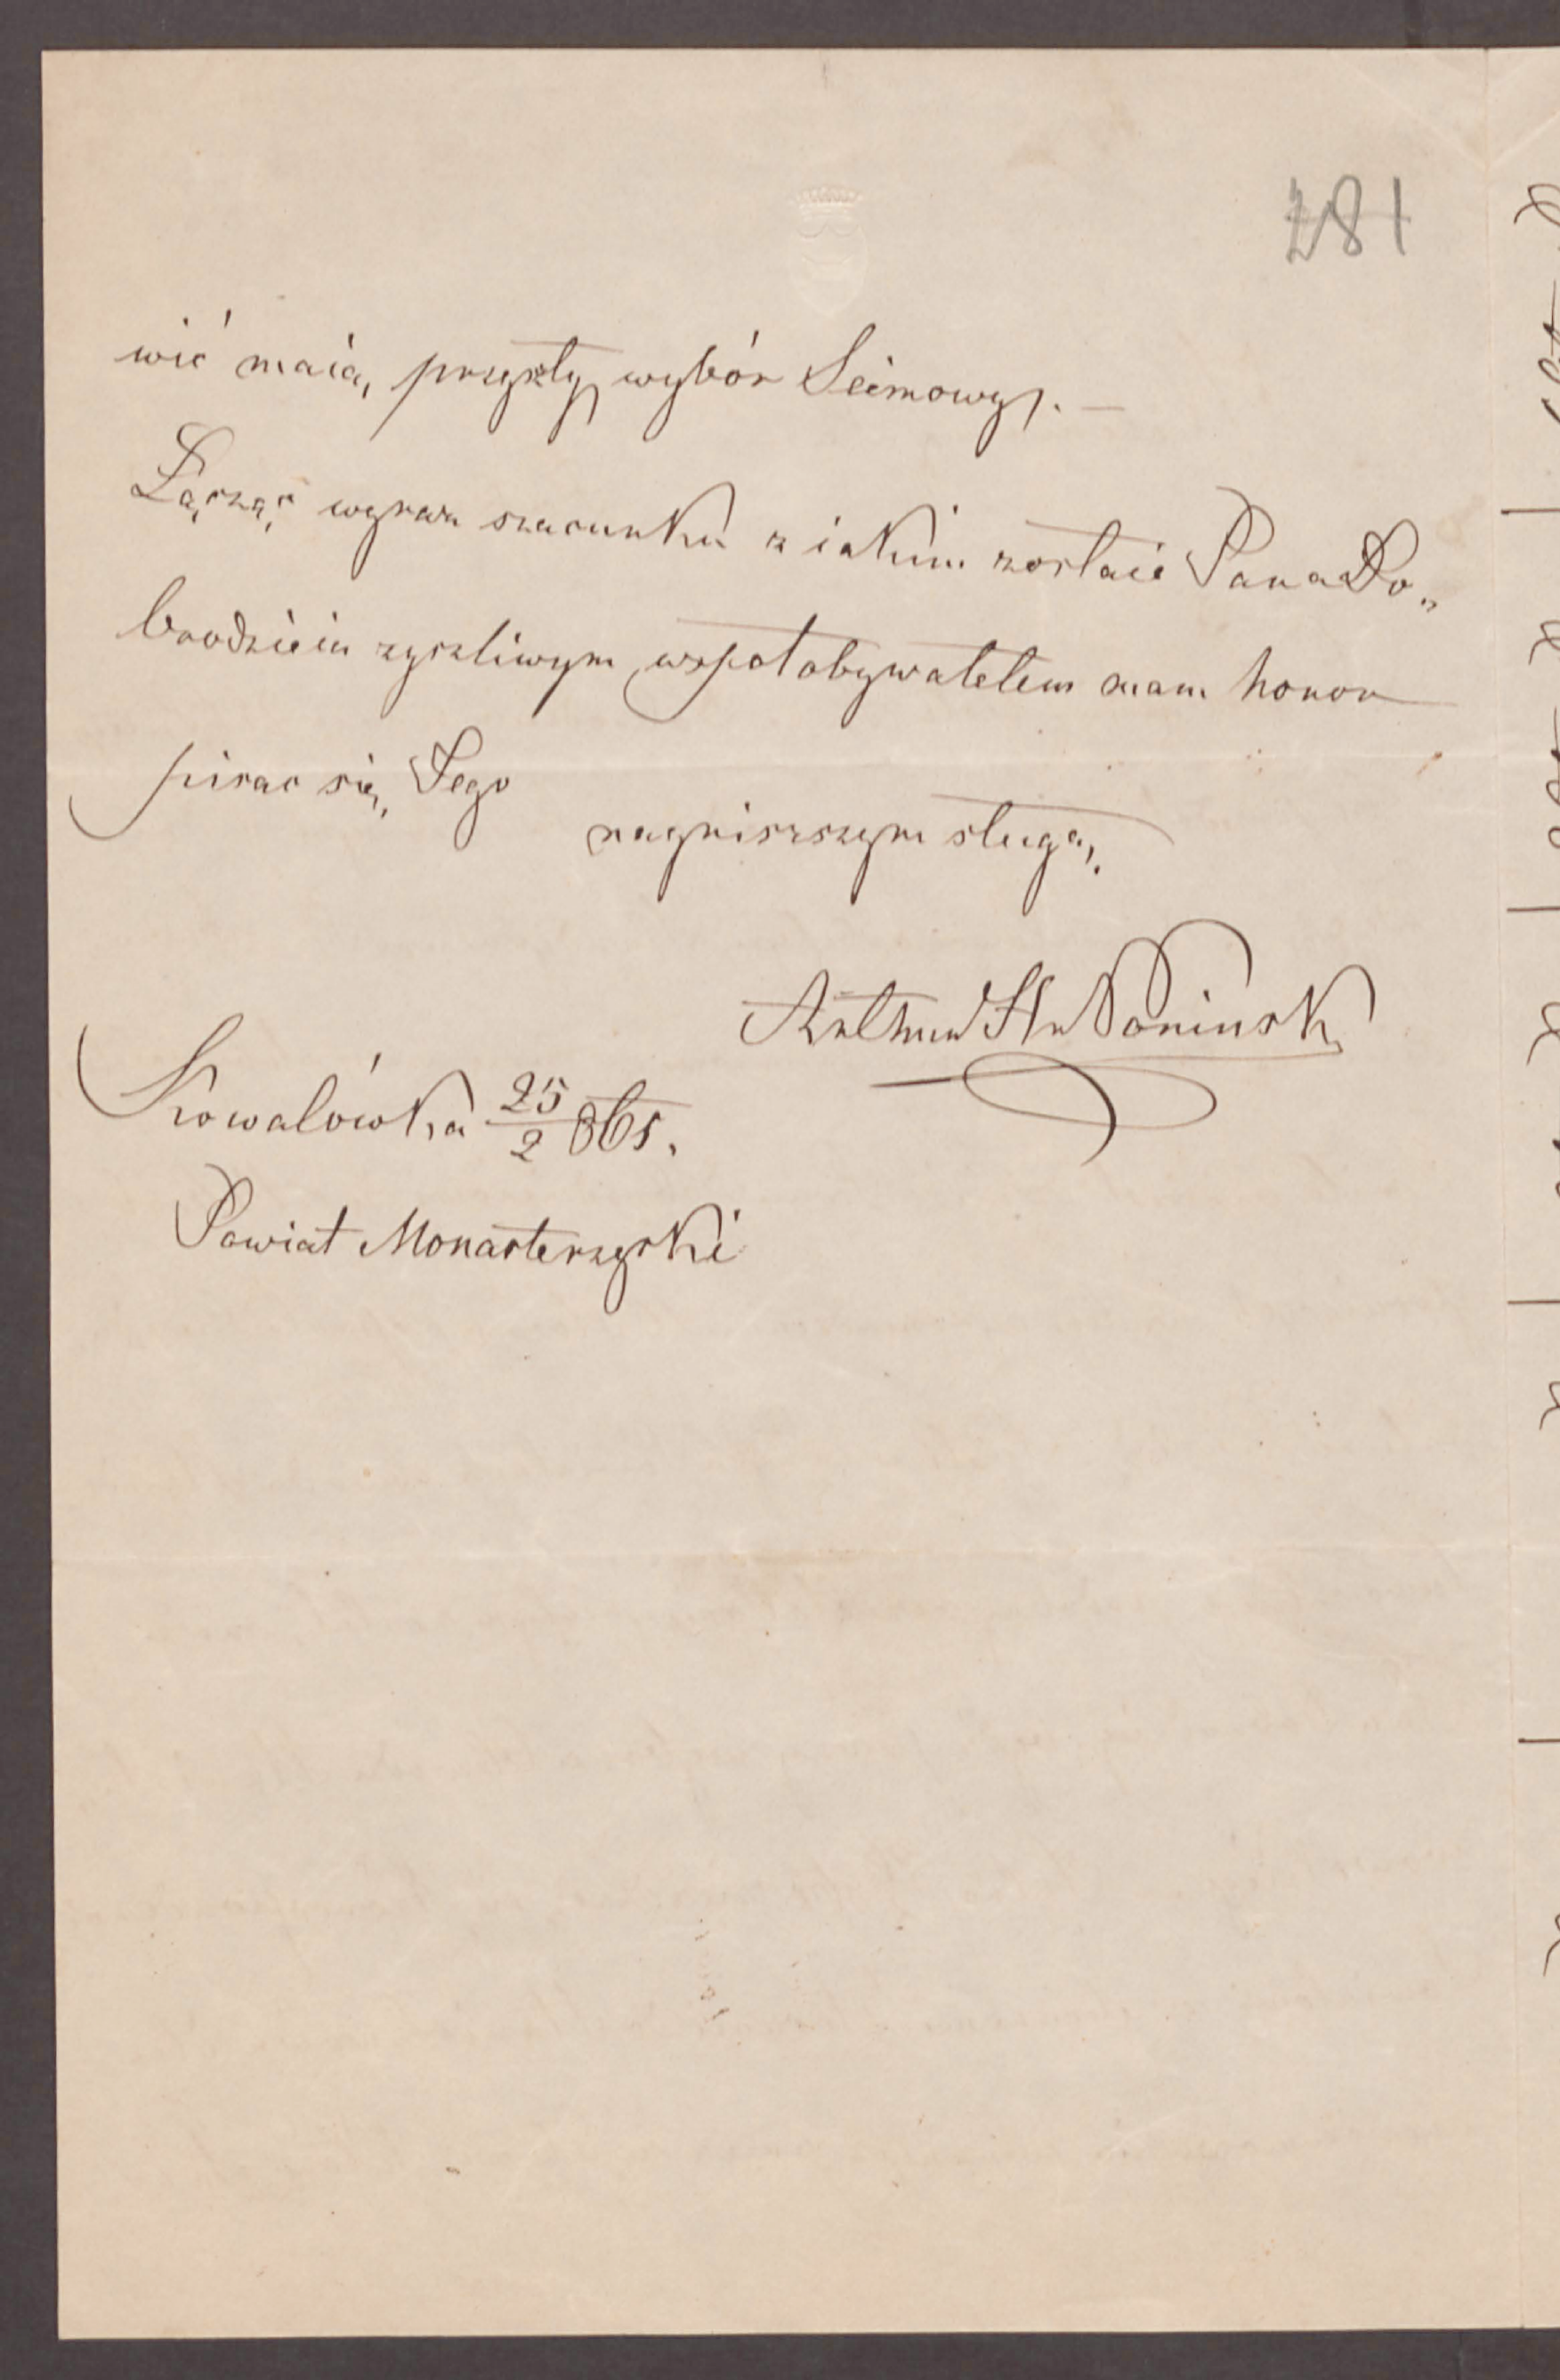 281
wić maią przyszły wybór Seimowy. —
Łącząc wyraz szacunku z iakim zostaię Pana Do„
brodzieia życzliwym współobywatelem mam honor
pisac się Jego
nayniższym sługą.
Arthur Hr Poninski
Kowalówka 25/2 865.
Powiat Monasterzyski